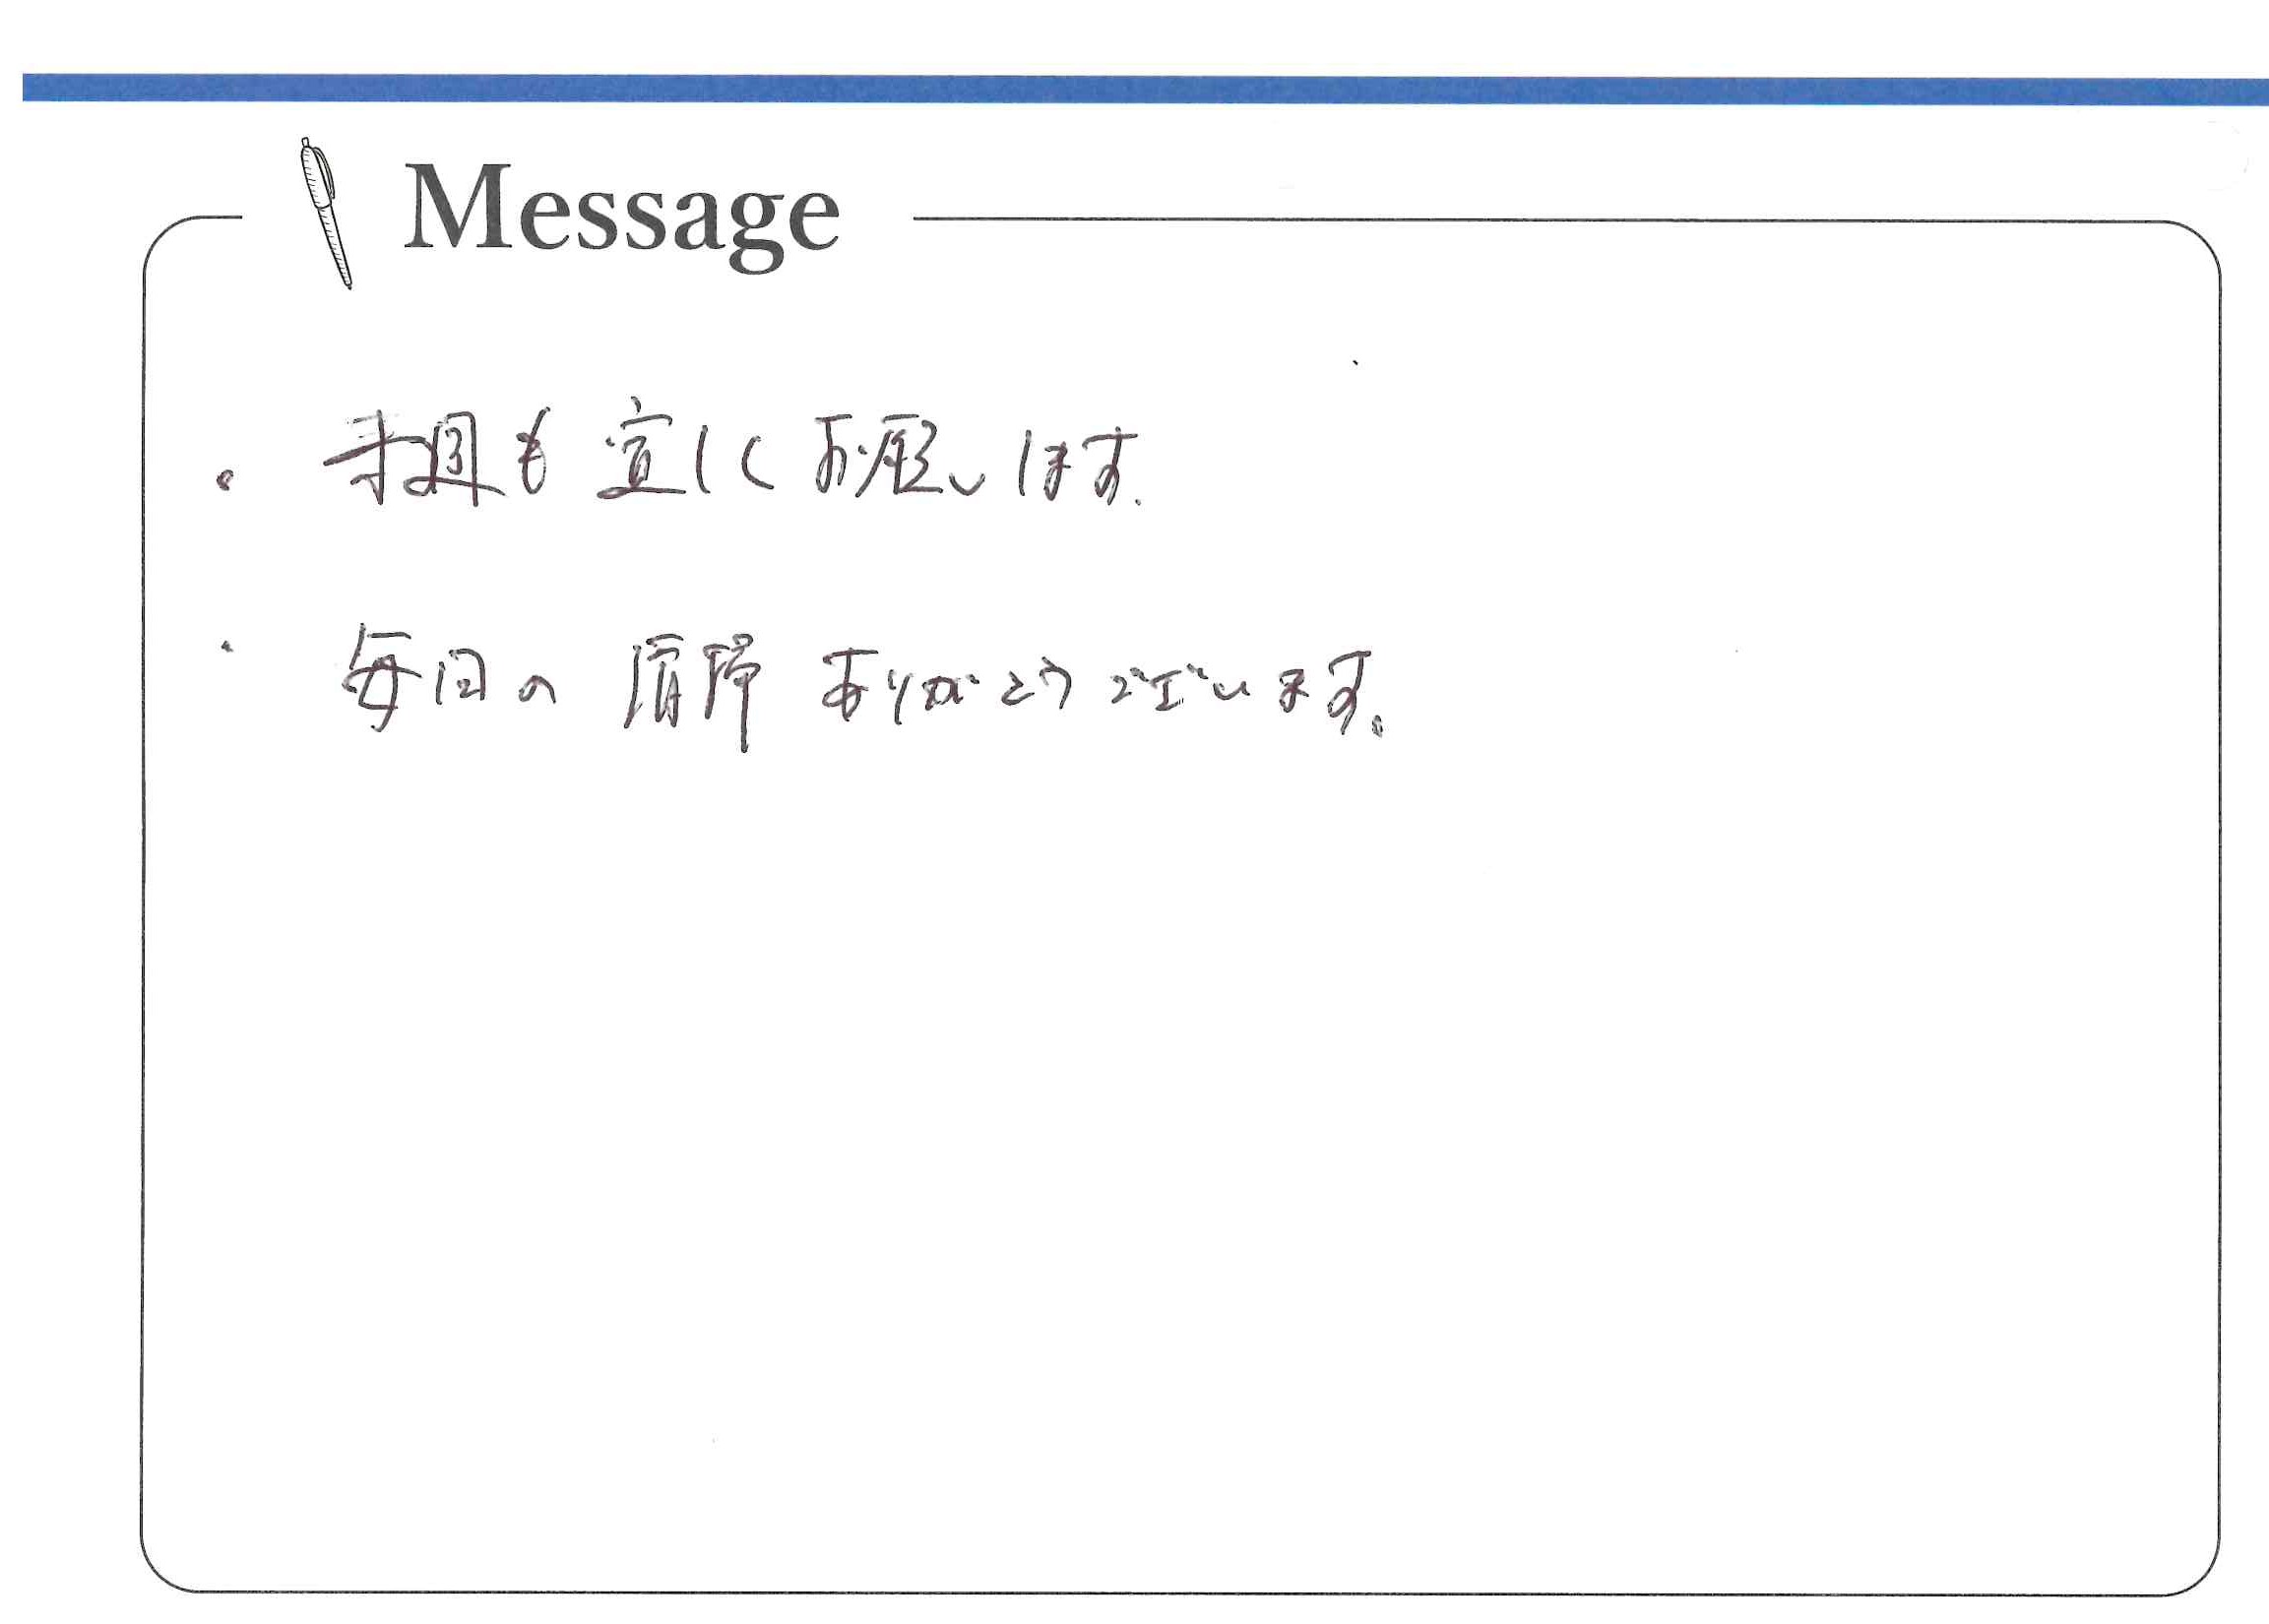 Message
・ 来週も宜しくお願いします.
・ 毎回の ありがとうございます。